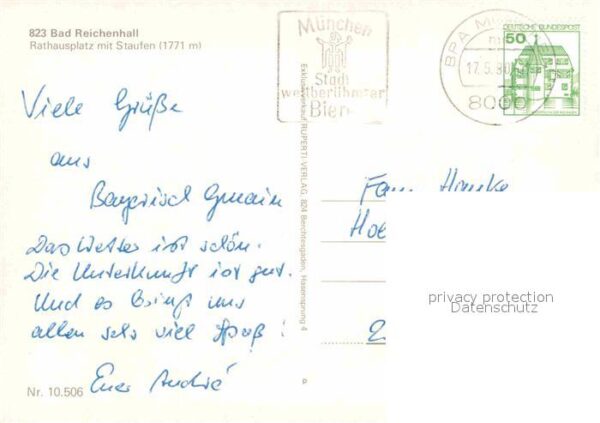 823 Bad Reichenhall
Rathausplatz mit Staufen (1771 m)
München
Stadt
weltberühmter
Biere
BPA München
17.5.80
8000
50
DEUTSCHE BUNDESPOST
Viele Grüße
aus
Bayerisch Gmain
Das Wetter ist schön.
Die Unterkunft ist gut.
Und es bringt uns
allen sehr viel Spaß!
Euer André
Nr. 10.506
Exklusivverkauf RUPERTI-VERLAG, 824 Berchtesgaden, Hasensprung 4
P
Fam.
privacy protection
Datenschutz